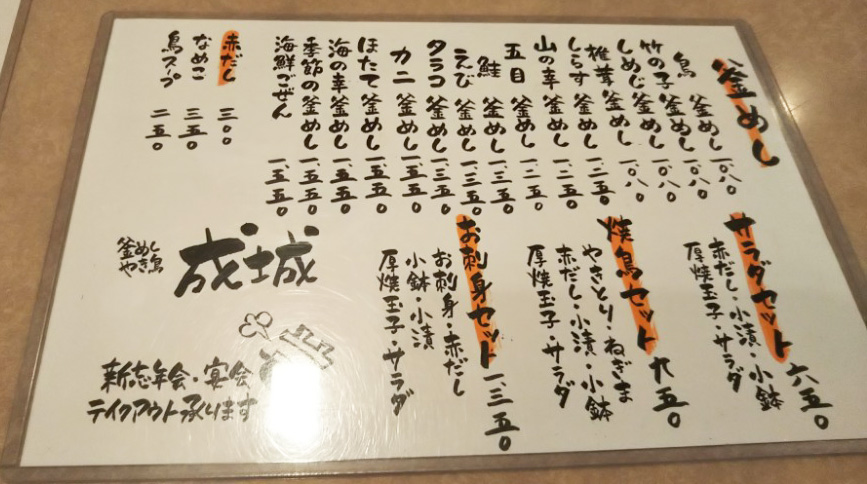 釜めし
鳥 釜めし 一、〇八〇
竹の子 釜めし 一、〇八〇
しめじ 釜めし 一、〇八〇
椎茸 釜めし 一、〇八〇
しらす 釜めし 一、二五〇
山の幸 釜めし 一、二五〇
五目 釜めし 一、二五〇
鮭 釜めし 一、三五〇
えび 釜めし 一、三五〇
タラコ 釜めし 一、三五〇
カニ 釜めし 一、五五〇
ほたて 釜めし 一、五五〇
海の幸 釜めし 一、五五〇
季節の釜めし 一、五五〇
海鮮ごぜん 一、五五〇
赤だし 三〇〇
なめこ 三五〇
鳥スープ 二五〇
サラダセット 六五〇
赤だし・小漬・小鉢
厚焼玉子・サラダ
焼鳥セット 九五〇
やきとり・ねぎま
赤だし・小漬・小鉢
厚焼玉子・サラダ
お刺身セット 一、三五〇
お刺身・赤だし
小鉢・小漬
厚焼玉子・サラダ
釜めし
やき鳥
成城
新忘年会・宴会
テイクアウト承ります